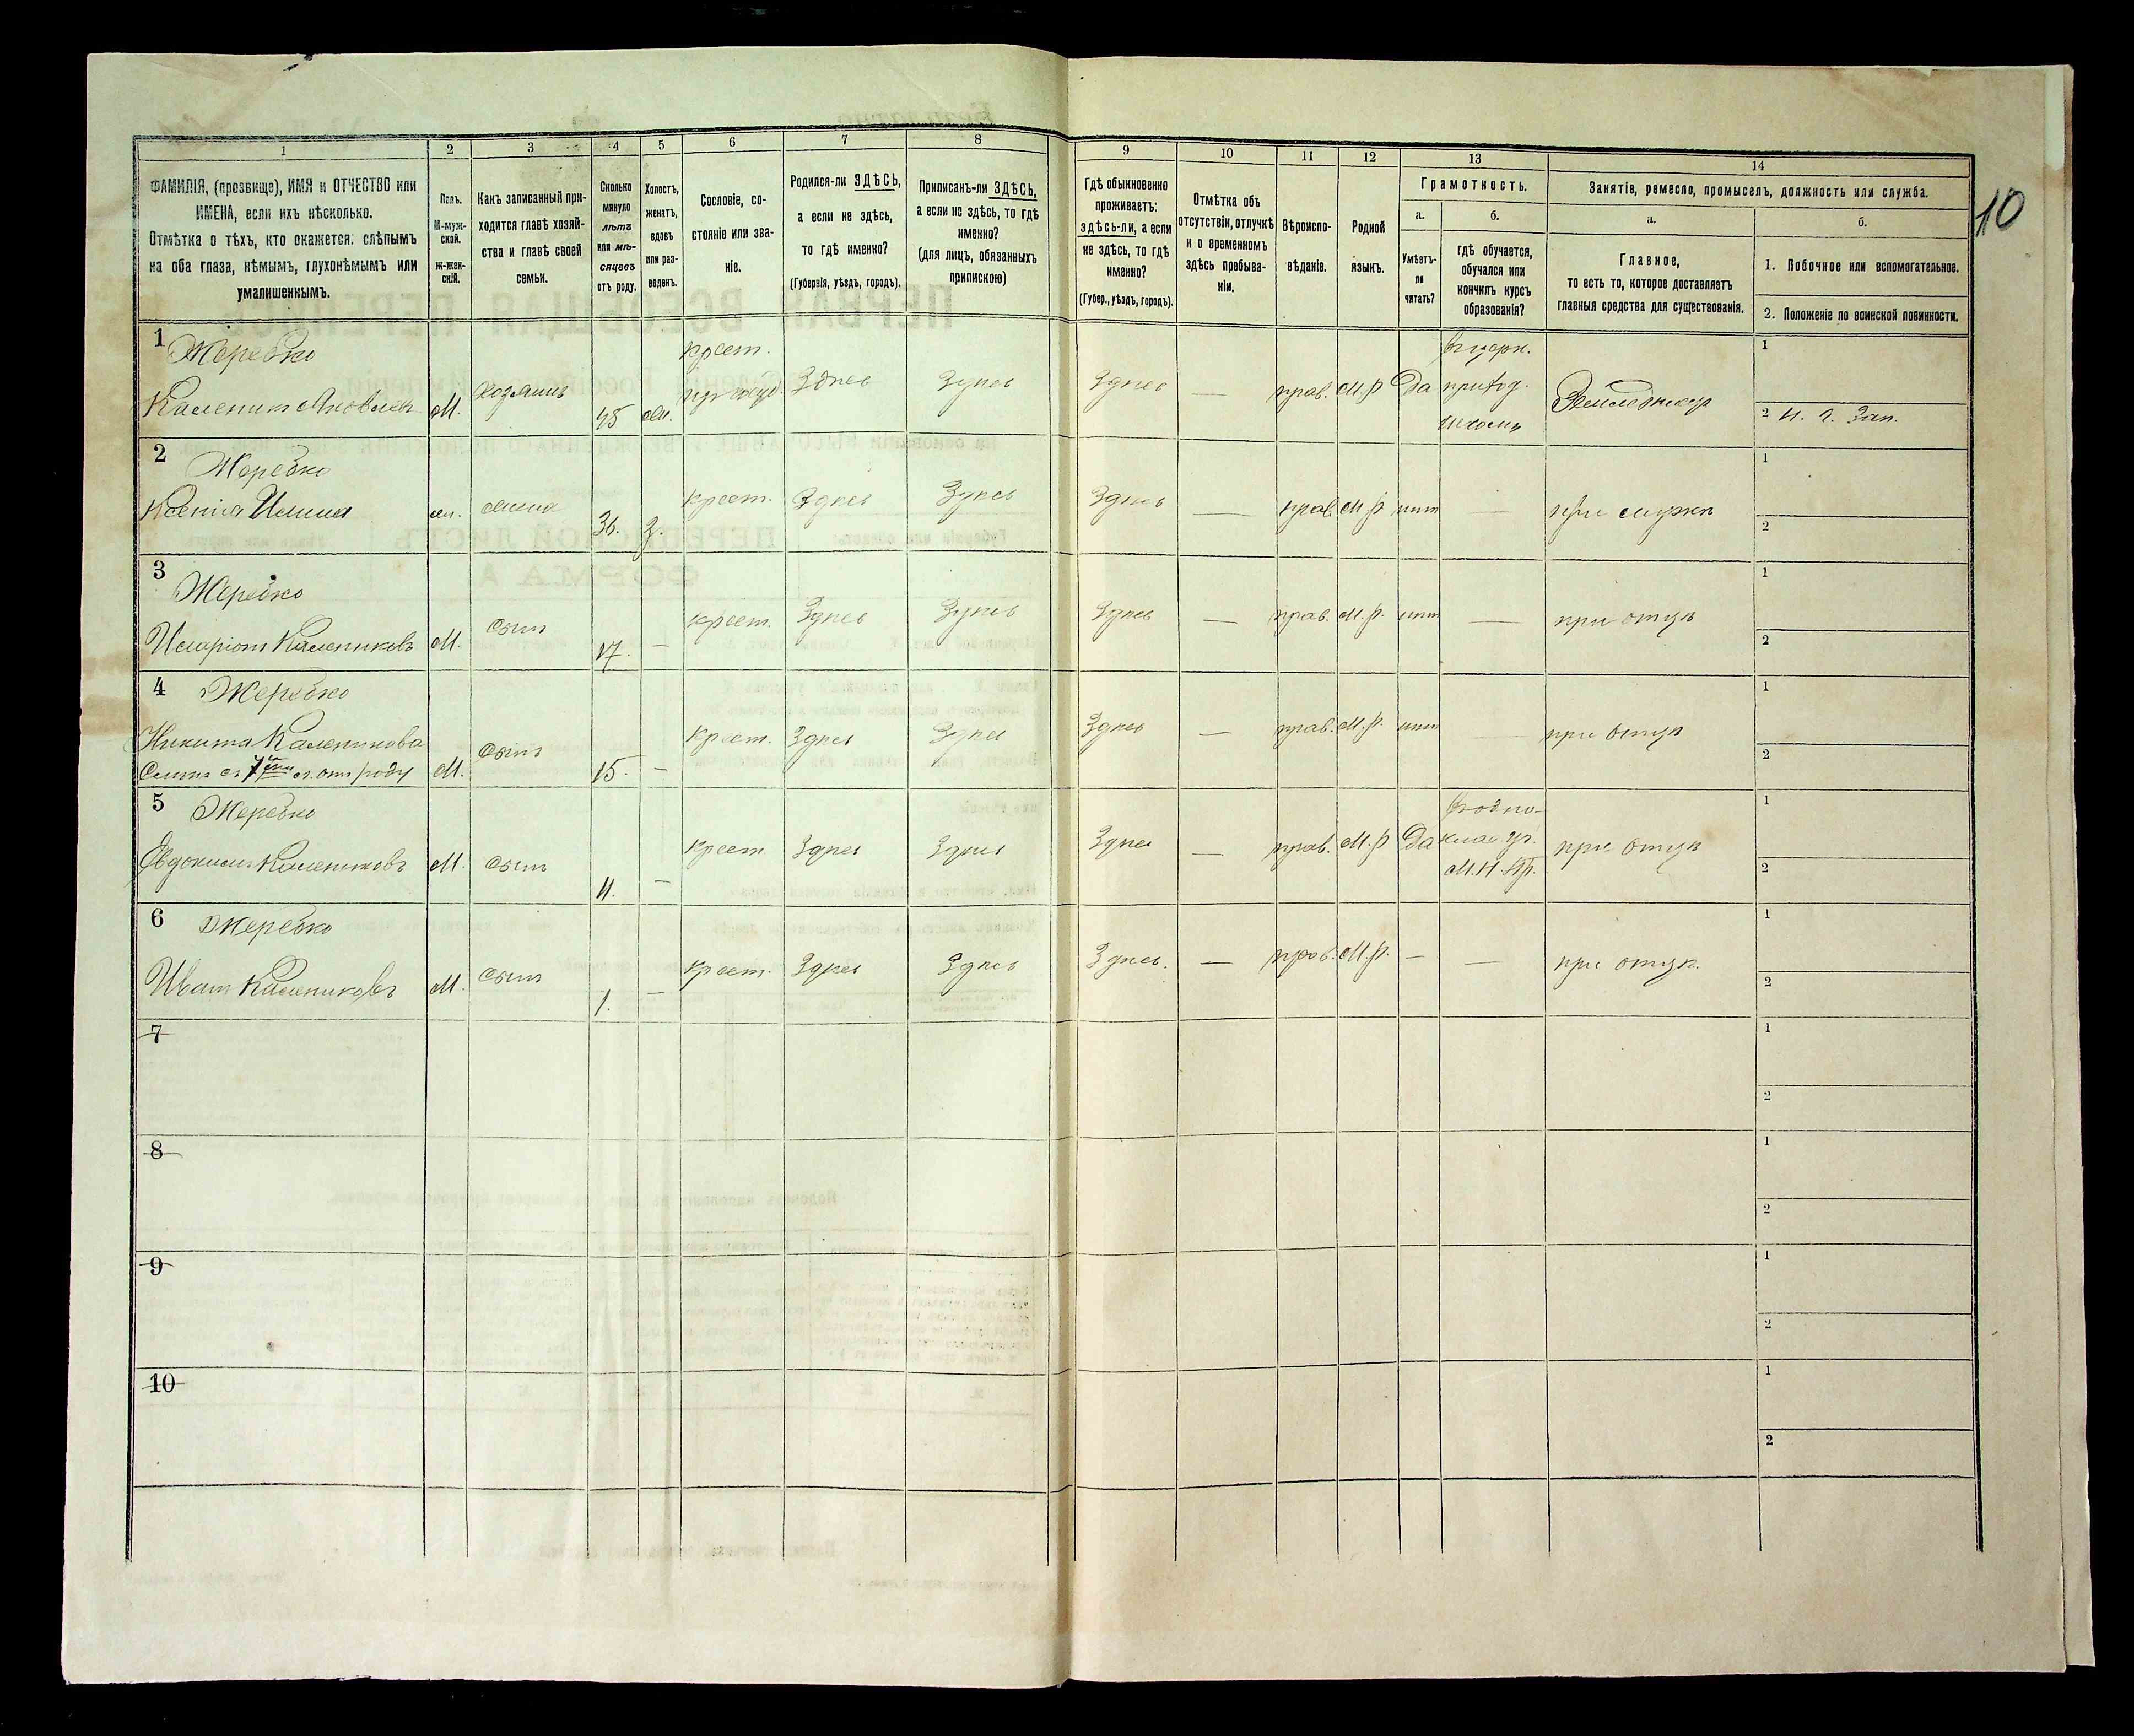 10
1
2
3
4
5
6
7
8
9
10
11
12
13
14
ФАМИЛІЯ, (прозвище), ИМЯ и ОТЧЕСТВО или
ИМЕНА, если ихъ нѣсколько.
Отмѣтка о тѣхъ, кто окажется: слѣпымъ
на оба глаза, нѣмымъ, глухонѣмымъ или
умалишеннымъ.
Полъ.
М-муж-
ской.
ж-жен-
скій.
Какъ записанный при-
ходится главѣ хозяй-
ства и главѣ своей
семьи.
Сколько
минуло
лѣтъ
или мѣ-
сяцевъ
отъ роду.
Холостъ,
женатъ,
вдовъ
или раз-
веденъ.
Сословіе, со-
стояніе или зва-
ніе.
Родился-ли ЗДѢСЬ,
а если не здѣсь,
то гдѣ именно?
(Губернія, уѣздъ, городъ).
Приписанъ-ли ЗДѢСЬ,
а если не здѣсь, то гдѣ
именно?
(для лицъ, обязанныхъ
припискою)
Гдѣ обыкновенно
проживаетъ:
здѣсь-ли, а если
не здѣсь, то гдѣ
именно?
(Губер., уѣздъ, городъ).
Отмѣтка объ
отсутствіи, отлучкѣ
и о временномъ
здѣсь пребыва-
ніи.
Вѣроиспо-
вѣданіе.
Родной
языкъ.
Грамотность.
а.
Умѣетъ-
ли
читать?
б.
гдѣ обучается,
обучался или
кончилъ курсъ
образованія?
Занятіе, ремесло, промыселъ, должность или служба.
а.
Главное,
то есть то, которое доставляетъ
главныя средства для существованія.
б.
1. Побочное или вспомогательное.
2. Положеніе по воинской повинности.
1 Жеребко
Каленикъ Яковлев
М. хозяинъ 45 крест. Здѣсь Здѣсь Здѣсь — прав. М.р Да
приход.
школѣ
1
2
2 Жеребко
Ксенія
жена 36. крест. Здѣсь Здѣсь Здѣсь — прав. М.р нѣт —
1
2
3 Жеребко
Иларіонъ Калениковъ М. Сынъ 17. — крест. Здѣсь Здѣсь Здѣсь — прав. М.р. нѣт — при отцѣ
1
2
4 Жеребко
Никита Каленикова
отъ роду М. Сынъ 15. — крест. Здѣсь Здѣсь Здѣсь — прав. М.р. нѣт — при отцѣ
1
2
5 Жеребко
Евдокимъ Калениковъ М. Сынъ 11. — крест Здѣсь Здѣсь Здѣсь — прав. М.р Да
М.Н.Пр.
при отцѣ
1
2
6 Жеребко
Иванъ Калениковъ М. Сынъ 1. — крест. Здѣсь Здѣсь Здѣсь. — прав. М.р. — — при отцѣ.
1
2
7
1
2
8
1
2
9
1
2
10
1
2